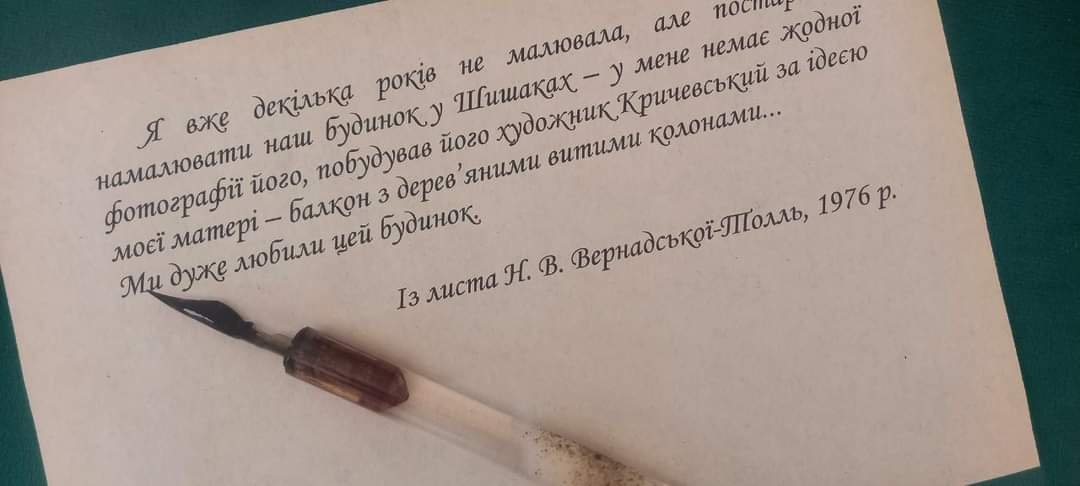 Я вже декілька років не малювала, але
намалювати наш будинок у Шишаках – у мене немає жодної
фотографії його, побудував його художник Кричевський за ідеєю
моєї матері – балкон з дерев’яними витими колонами...
Ми дуже любили цей будинок.
Із листа Н. В. Вернадської-Толль, 1976 р.